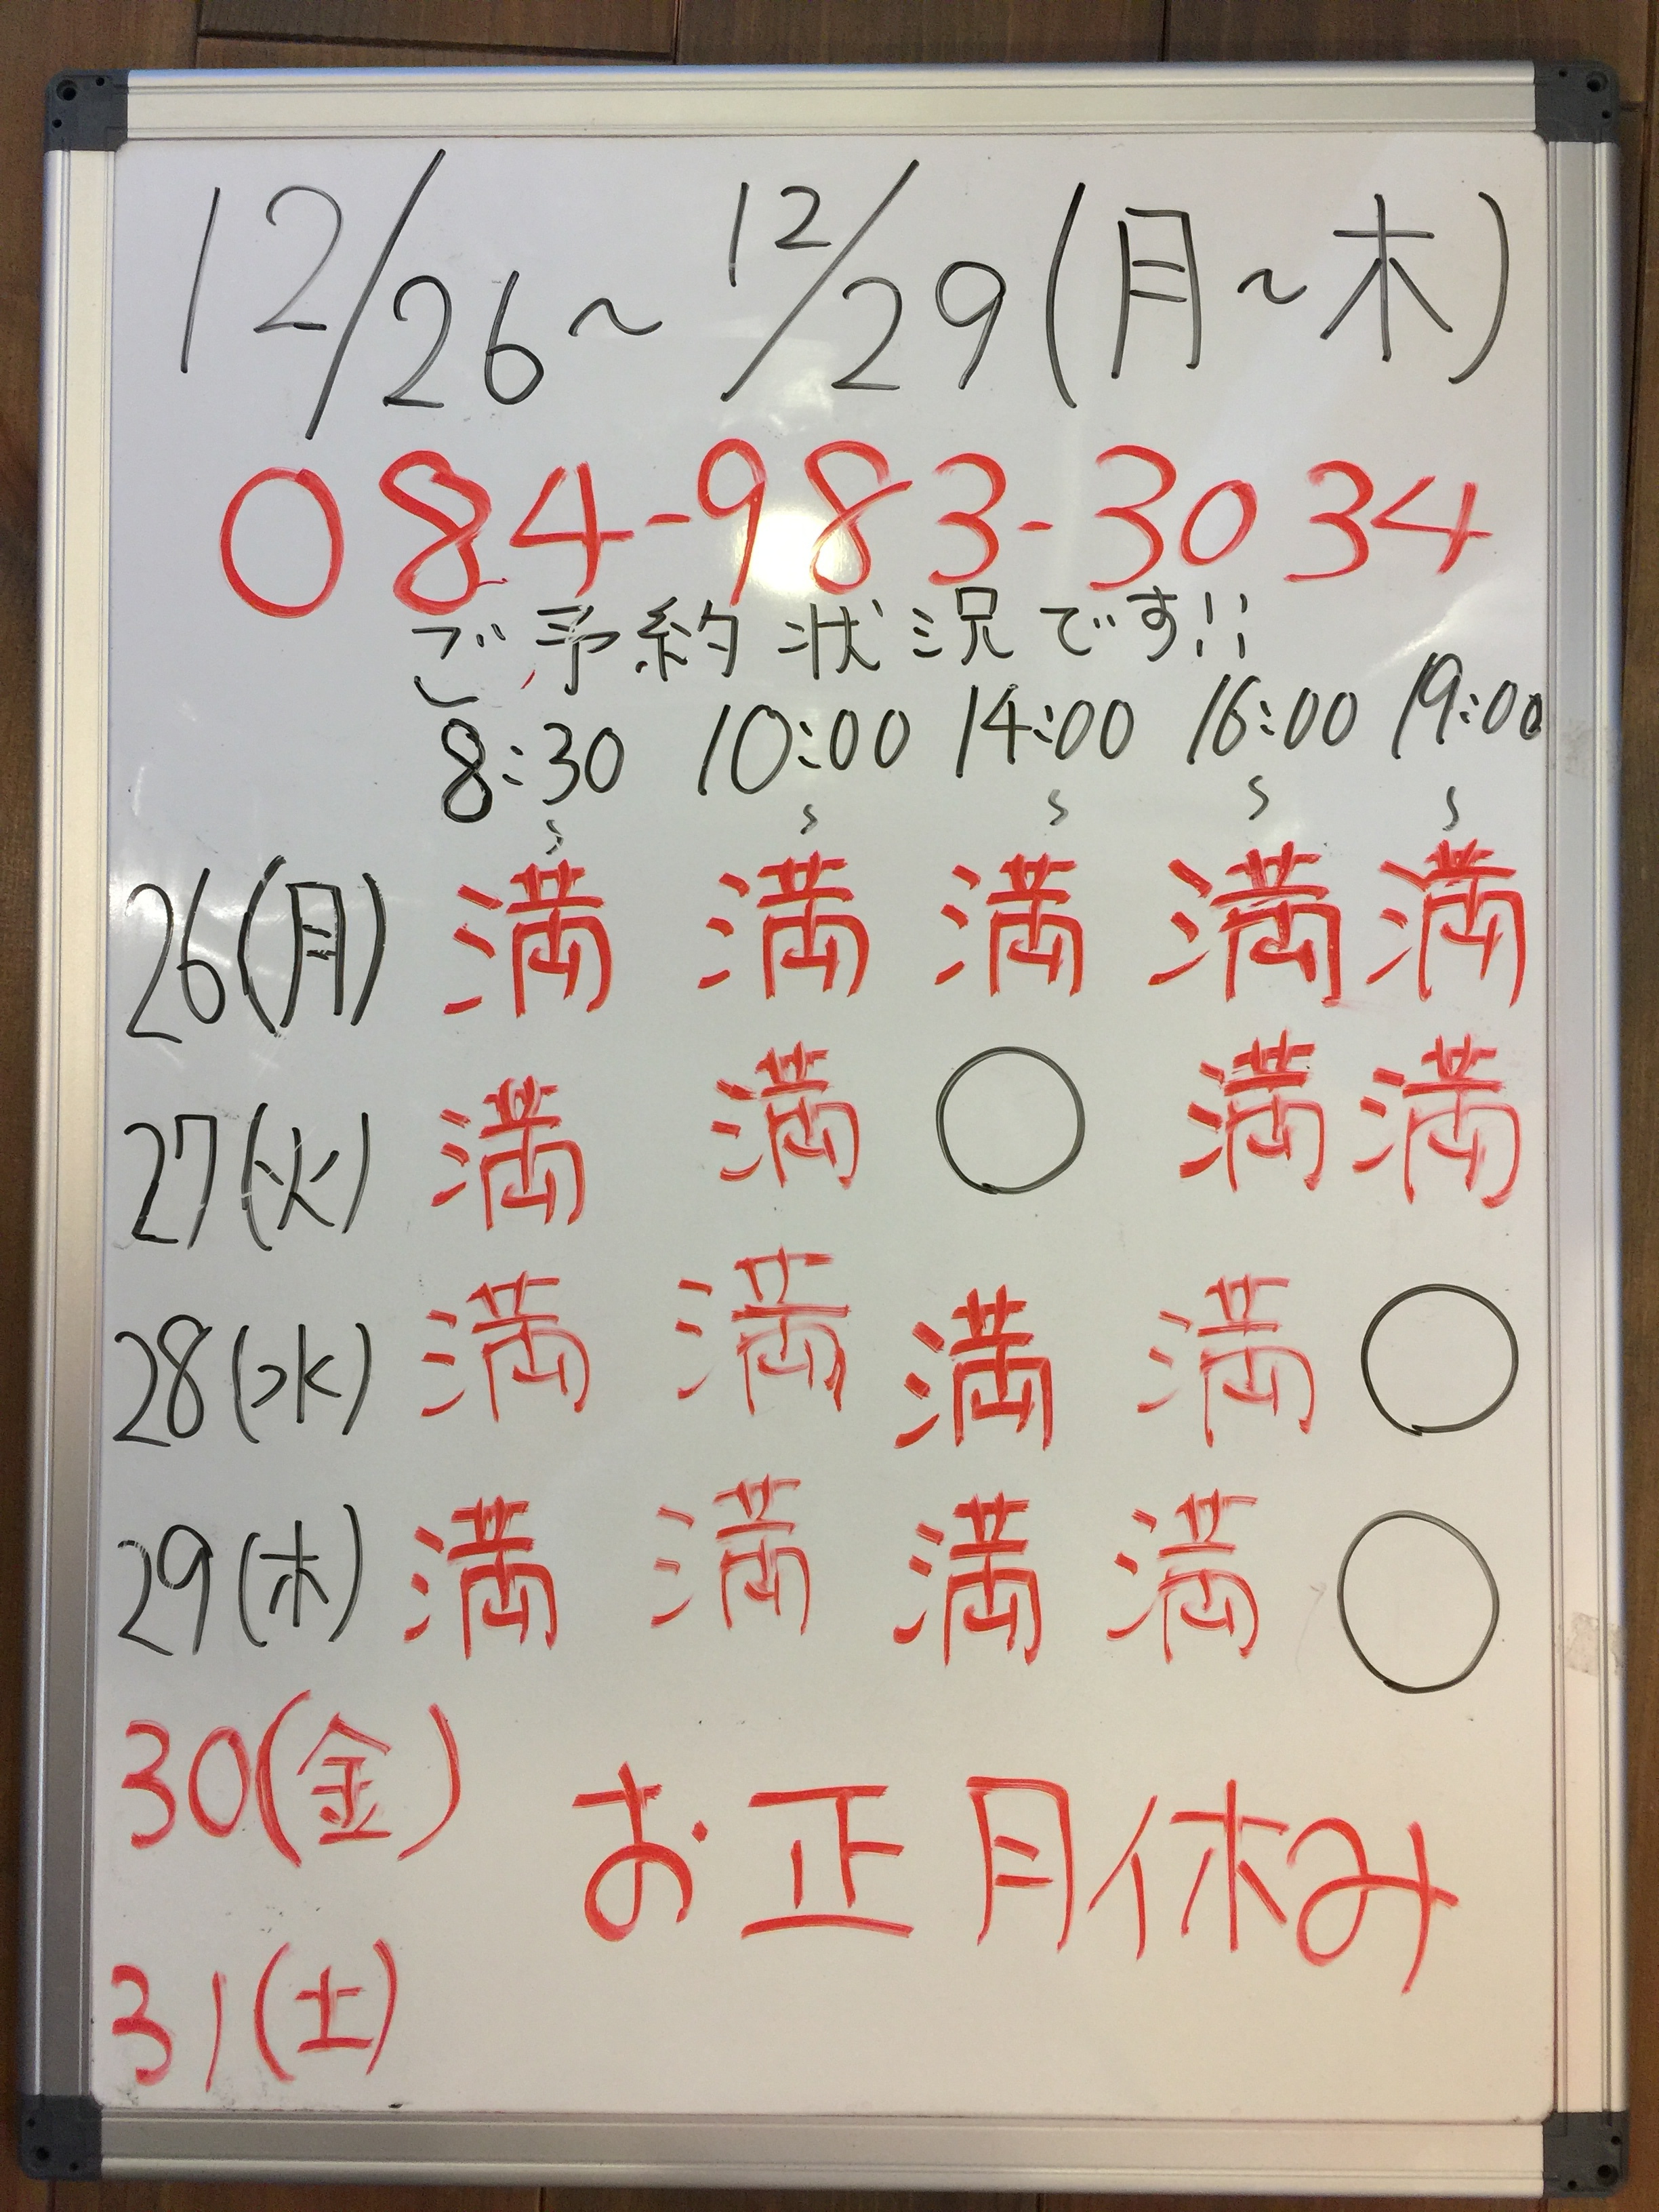 12/26～12/29(月～木)
084-983-3034
ご予約状況です!!
8:30～ 10:00～ 14:00～ 16:00～ 19:00～
26(月) 満 満 満 満 満
27(火) 満 満 ○ 満 満
28(水) 満 満 満 満 ○
29(木) 満 満 満 満 ○
30(金)
お正月休み
31(土)